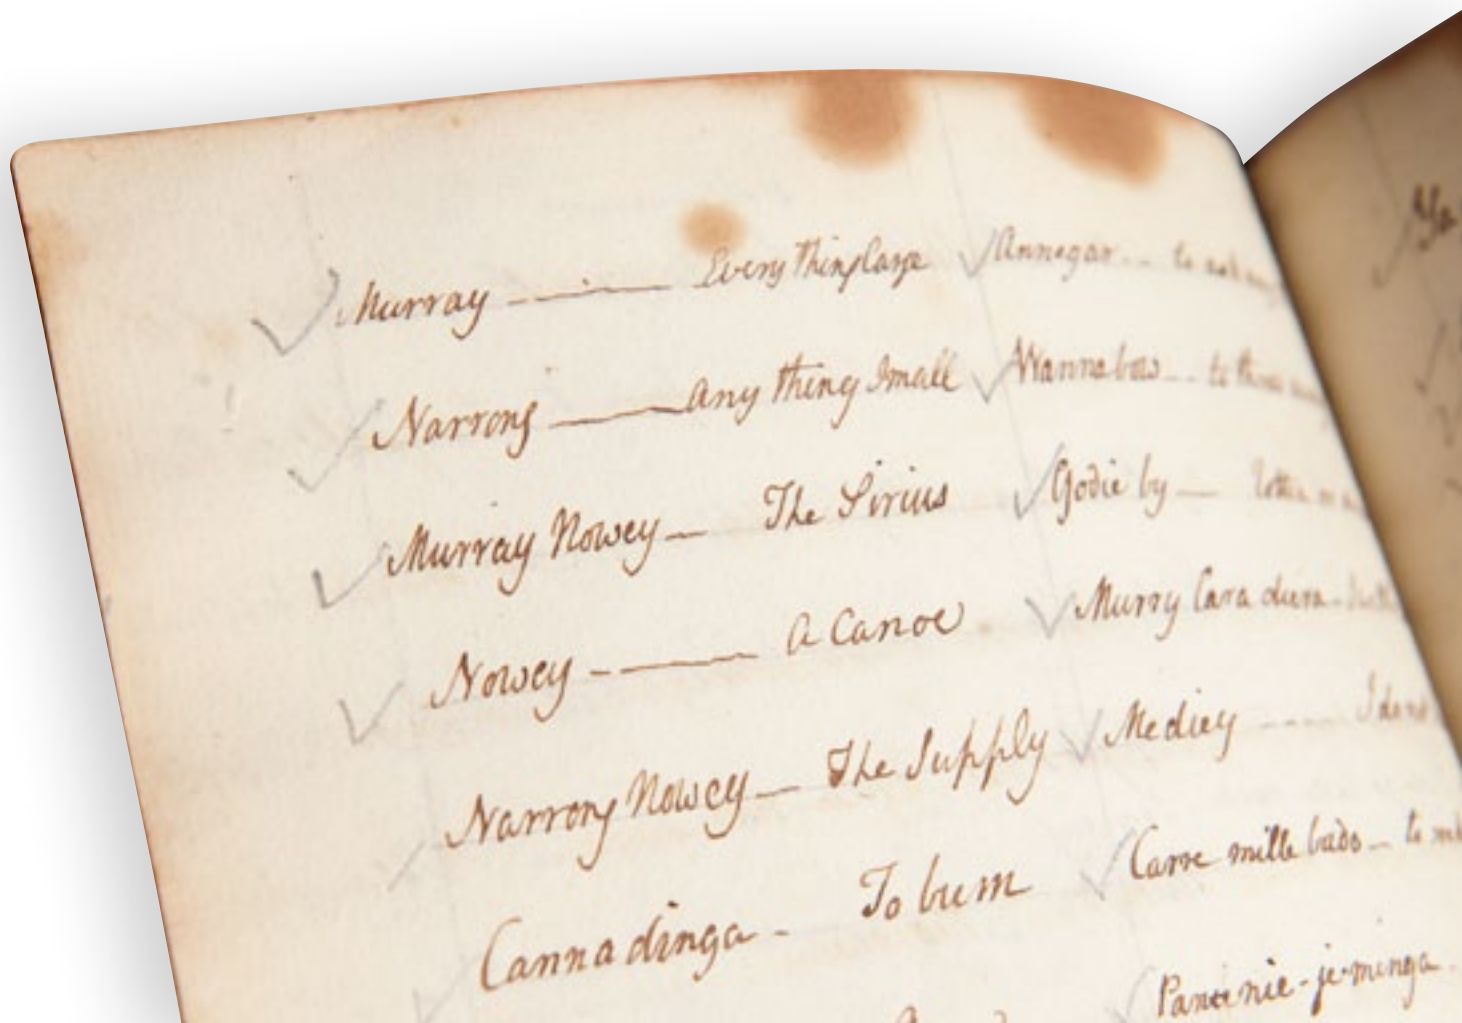 Murray — Every thing large
Narrong — any thing Small
Murray Nowey — The Sirius
Nowey — A Canoe
Narrong Nowey — The Supply
Canna dinga - To burn
Annegar - - to
Wannabow - - to
Godie by —
Murry Cara diera -
Mediey - - - - I do
Carre mille bado — to
Pantinie-je-minga